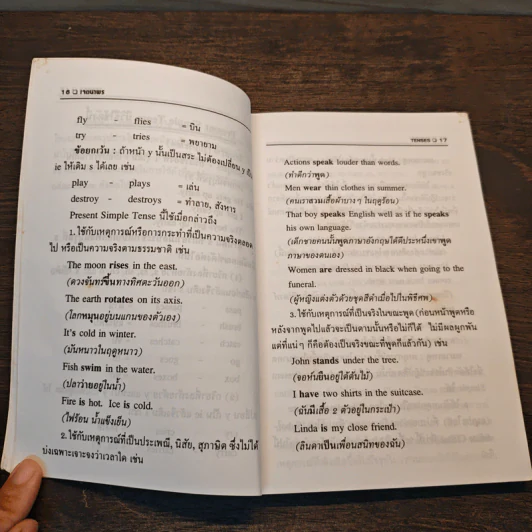 16 ❏ เจอนาพร
fly - flies = บิน
try - tries = พยายาม
ข้อยกเว้น : ถ้าหน้า y นั้นเป็นสระ ไม่ต้องเปลี่ยน y เป็น
ie ให้เติม s ได้เลย เช่น
play - plays = เล่น
destroy - destroys = ทำลาย, สังหาร
Present Simple Tense นี้ใช้เมื่อกล่าวถึง
1. ใช้กับเหตุการณ์หรือการกระทำที่เป็นความจริงตลอด
ไป หรือเป็นความจริงตามธรรมชาติ เช่น
The moon rises in the east.
(ดวงจันทร์ขึ้นทางทิศตะวันออก)
The earth rotates on its axis.
(โลกหมุนอยู่บนแกนของตัวเอง)
It's cold in winter.
(มันหนาวในฤดูหนาว)
Fish swim in the water.
(ปลาว่ายอยู่ในน้ำ)
Fire is hot. Ice is cold.
(ไฟร้อน น้ำแข็งเย็น)
2. ใช้กับเหตุการณ์ที่เป็นประเพณี, นิสัย, สุภาษิต ซึ่งไม่ได้
บ่งเฉพาะเจาะจงว่าเวลาใด เช่น
TENSES ❏ 17
Actions speak louder than words.
(ทำดีกว่าพูด)
Men wear thin clothes in summer.
(คนเราสวมเสื้อผ้าบาง ๆ ในฤดูร้อน)
That boy speaks English well as if he speaks
his own language.
(เด็กชายคนนั้นพูดภาษาอังกฤษได้ดีประหนึ่งเขาพูด
ภาษาของตนเอง)
Women are dressed in black when going to the
funeral.
(ผู้หญิงแต่งตัวด้วยชุดสีดำเมื่อไปในพิธีศพ)
3. ใช้กับเหตุการณ์ที่เป็นจริงในขณะพูด (ก่อนหน้าพูดหรือ
หลังจากพูดไปแล้วจะเป็นตามนั้นหรือไม่ก็ได้ ไม่มีผลผูกพัน
แต่ที่แน่ ๆ ก็คือต้องเป็นจริงขณะที่พูดก็แล้วกัน) เช่น
John stands under the tree.
(จอห์นยืนอยู่ใต้ต้นไม้)
I have two shirts in the suitcase.
(ฉันมีเสื้อ 2 ตัวอยู่ในกระเป๋า)
Linda is my close friend.
(ลินดาเป็นเพื่อนสนิทของฉัน)